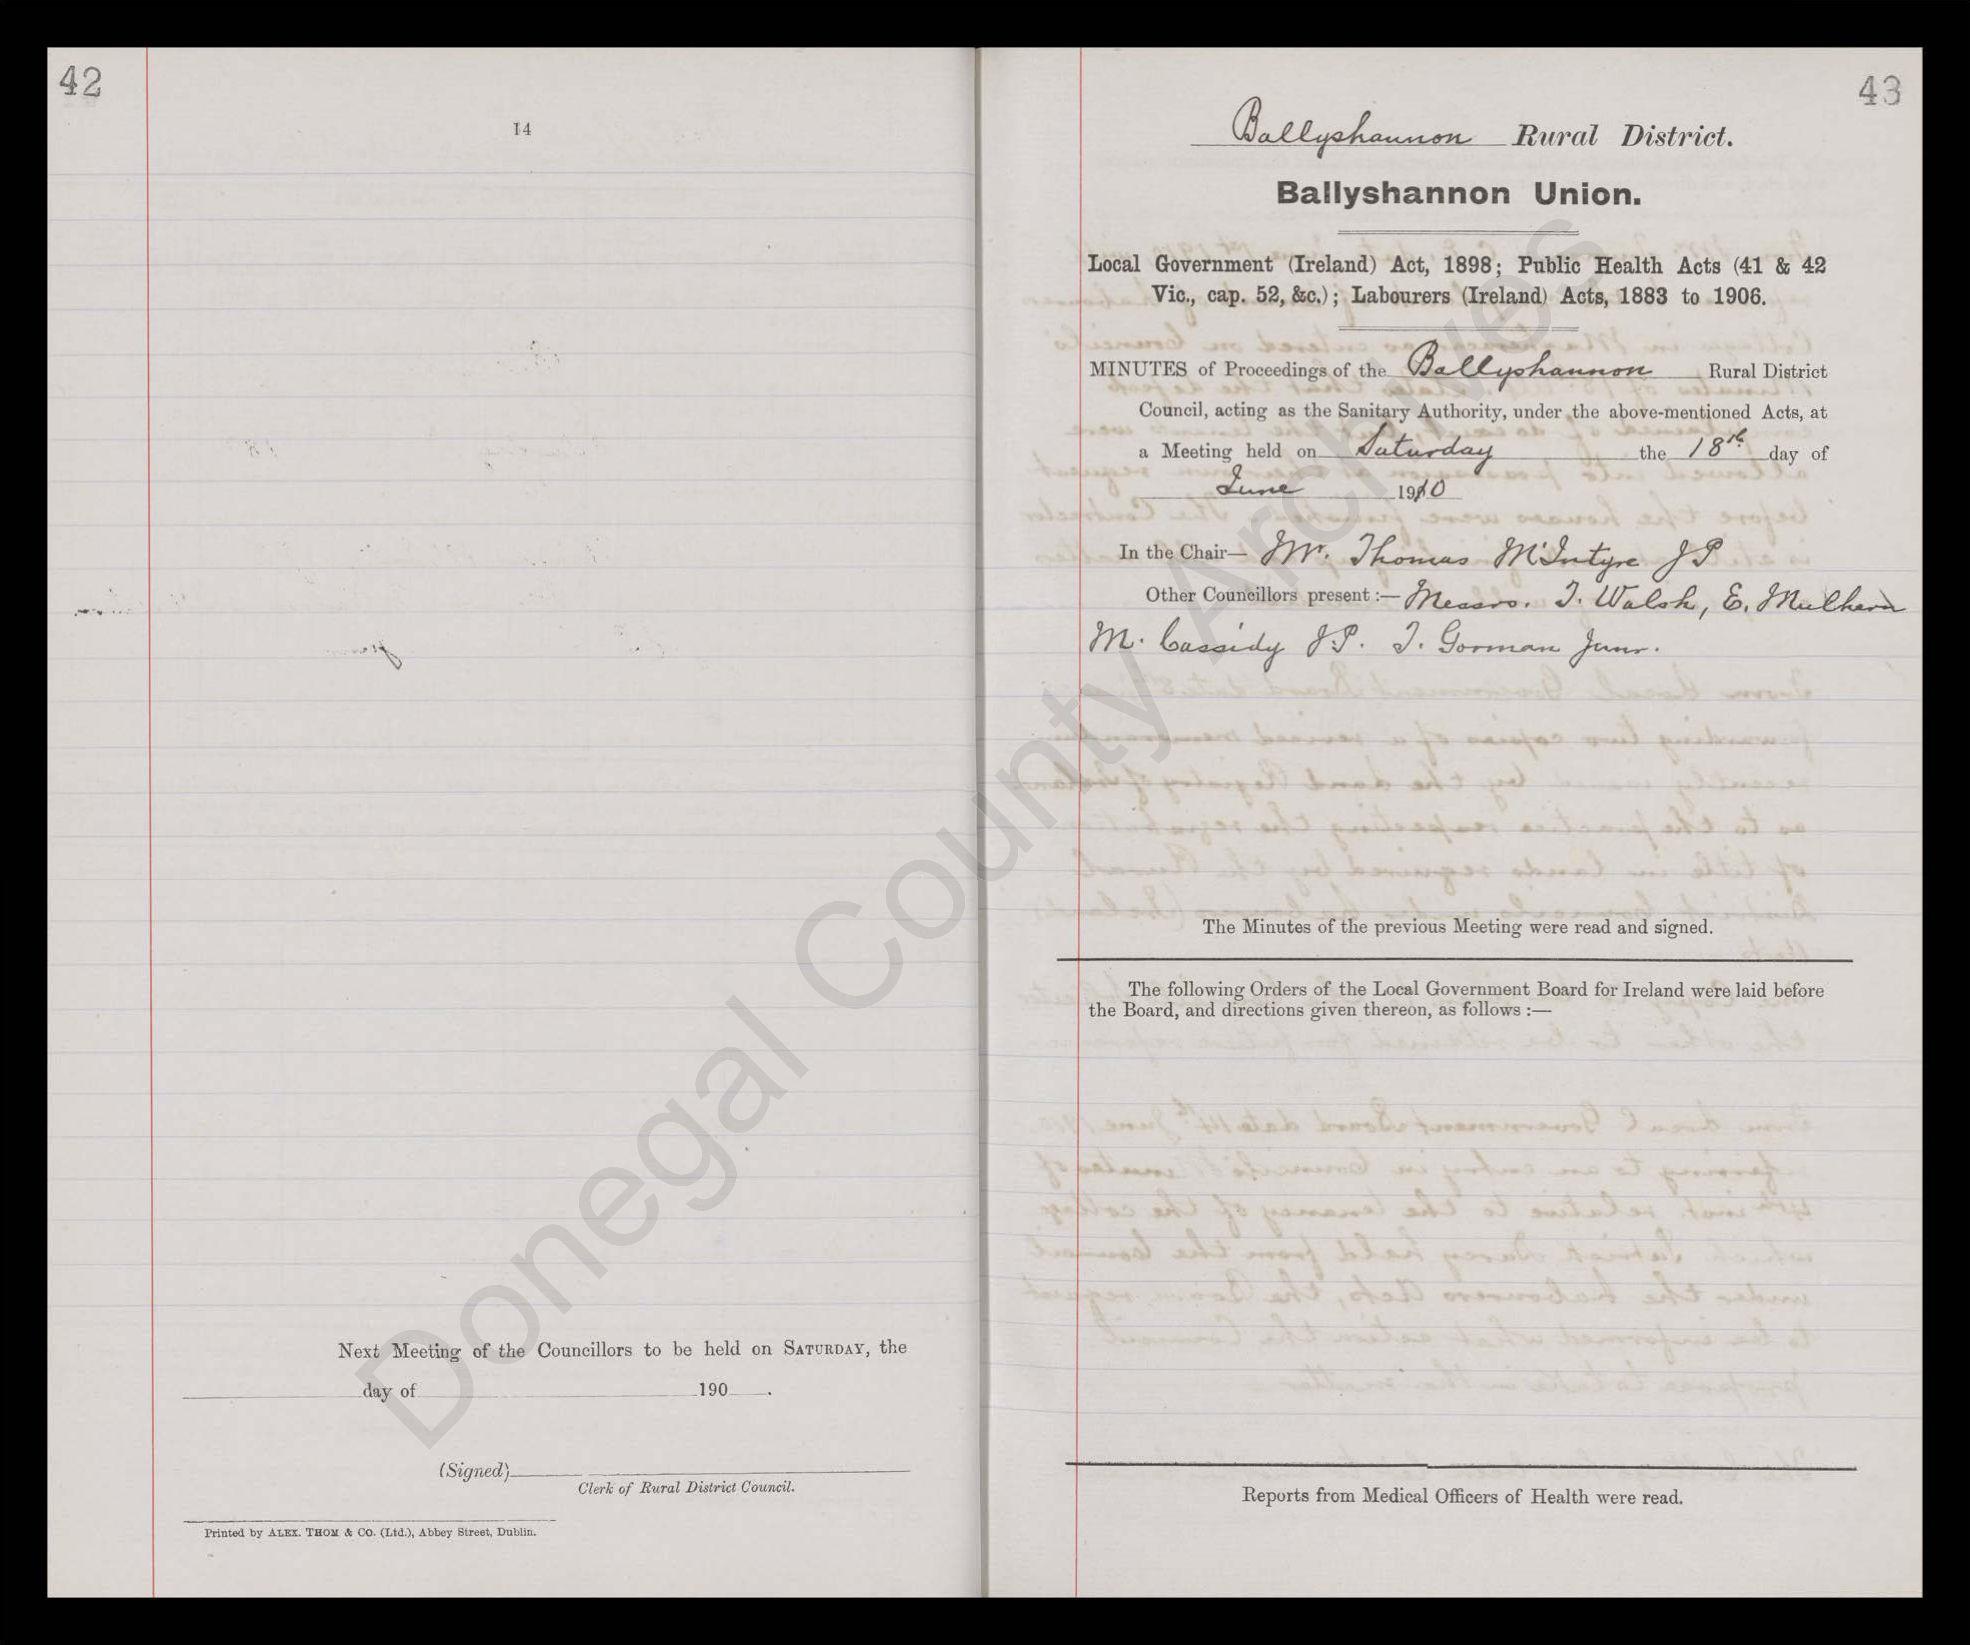 42
14
Next Meeting of the Councillors to be held on SATURDAY, the
day of 190 .
(Signed)
Clerk of Rural District Council.
Printed by ALEX. THOM & CO. (Ltd.), Abbey Street, Dublin.
43
Ballyshannon Rural District.
Ballyshannon Union.
Local Government (Ireland) Act, 1898; Public Health Acts (41 & 42
Vic., cap. 52, &c.); Labourers (Ireland) Acts, 1883 to 1906.
MINUTES of Proceedings of the Ballyshannon Rural District
Council, acting as the Sanitary Authority, under the above-mentioned Acts, at
a Meeting held on Saturday the 18th day of
June 1910
In the Chair— Mr. Thomas McIntyre JP
Other Councillors present :— Messrs. T. Walsh, E. Mulhern
M. Cassidy JP. T. Gorman Junr.
The Minutes of the previous Meeting were read and signed.
The following Orders of the Local Government Board for Ireland were laid before
the Board, and directions given thereon, as follows :—
Reports from Medical Officers of Health were read.
Donegal County Archives